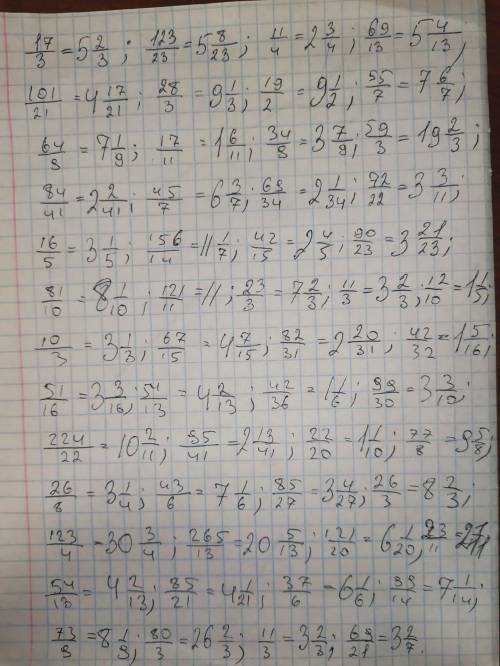 17/3 = 5 2/3; 123/23 = 5 8/23; 11/4 = 2 3/4; 69/13 = 5 4/13;
101/21 = 4 17/21; 28/3 = 9 1/3; 19/2 = 9 1/2; 55/7 = 7 6/7;
64/9 = 7 1/9; 17/11 = 1 6/11; 34/9 = 3 7/9; 59/3 = 19 2/3;
84/41 = 2 2/41; 45/7 = 6 3/7; 69/34 = 2 1/34; 72/22 = 3 3/11;
16/5 = 3 1/5; 156/14 = 11 1/7; 42/15 = 2 4/5; 90/23 = 3 21/23;
81/10 = 8 1/10; 121/11 = 11; 23/3 = 7 2/3; 11/3 = 3 2/3; 12/10 = 1 1/5;
10/3 = 3 1/3; 67/15 = 4 7/15; 82/31 = 2 20/31; 42/32 = 1 5/16;
51/16 = 3 3/16; 54/13 = 4 2/13; 42/36 = 1 1/6; 99/30 = 3 3/10;
224/22 = 10 2/11; 95/41 = 2 13/41; 22/20 = 1 1/10; 77/8 = 9 5/8;
26/8 = 3 1/4; 43/6 = 7 1/6; 85/27 = 3 4/27; 26/3 = 8 2/3;
123/4 = 30 3/4; 265/13 = 20 5/13; 121/20 = 6 1/20; 23/11 = 2 1/11;
54/13 = 4 2/13; 85/21 = 4 1/21; 37/6 = 6 1/6; 99/14 = 7 1/14;
73/9 = 8 1/9; 80/3 = 26 2/3; 11/3 = 3 2/3; 69/21 = 3 2/7.